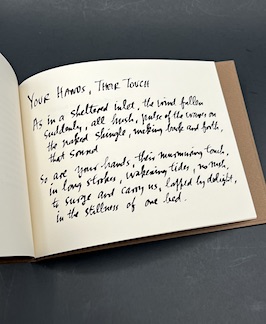 YOUR HANDS, THEIR TOUCH
As in a sheltered inlet, the wind fallen
suddenly, all hush, pulse of the waves on
the naked shingle, making back and forth,
that sound
So are your hands, their murmuring touch,
in long strokes, wakening tides, no rush,
to surge and carry us, lapped by delight,
in the stillness of one bed.